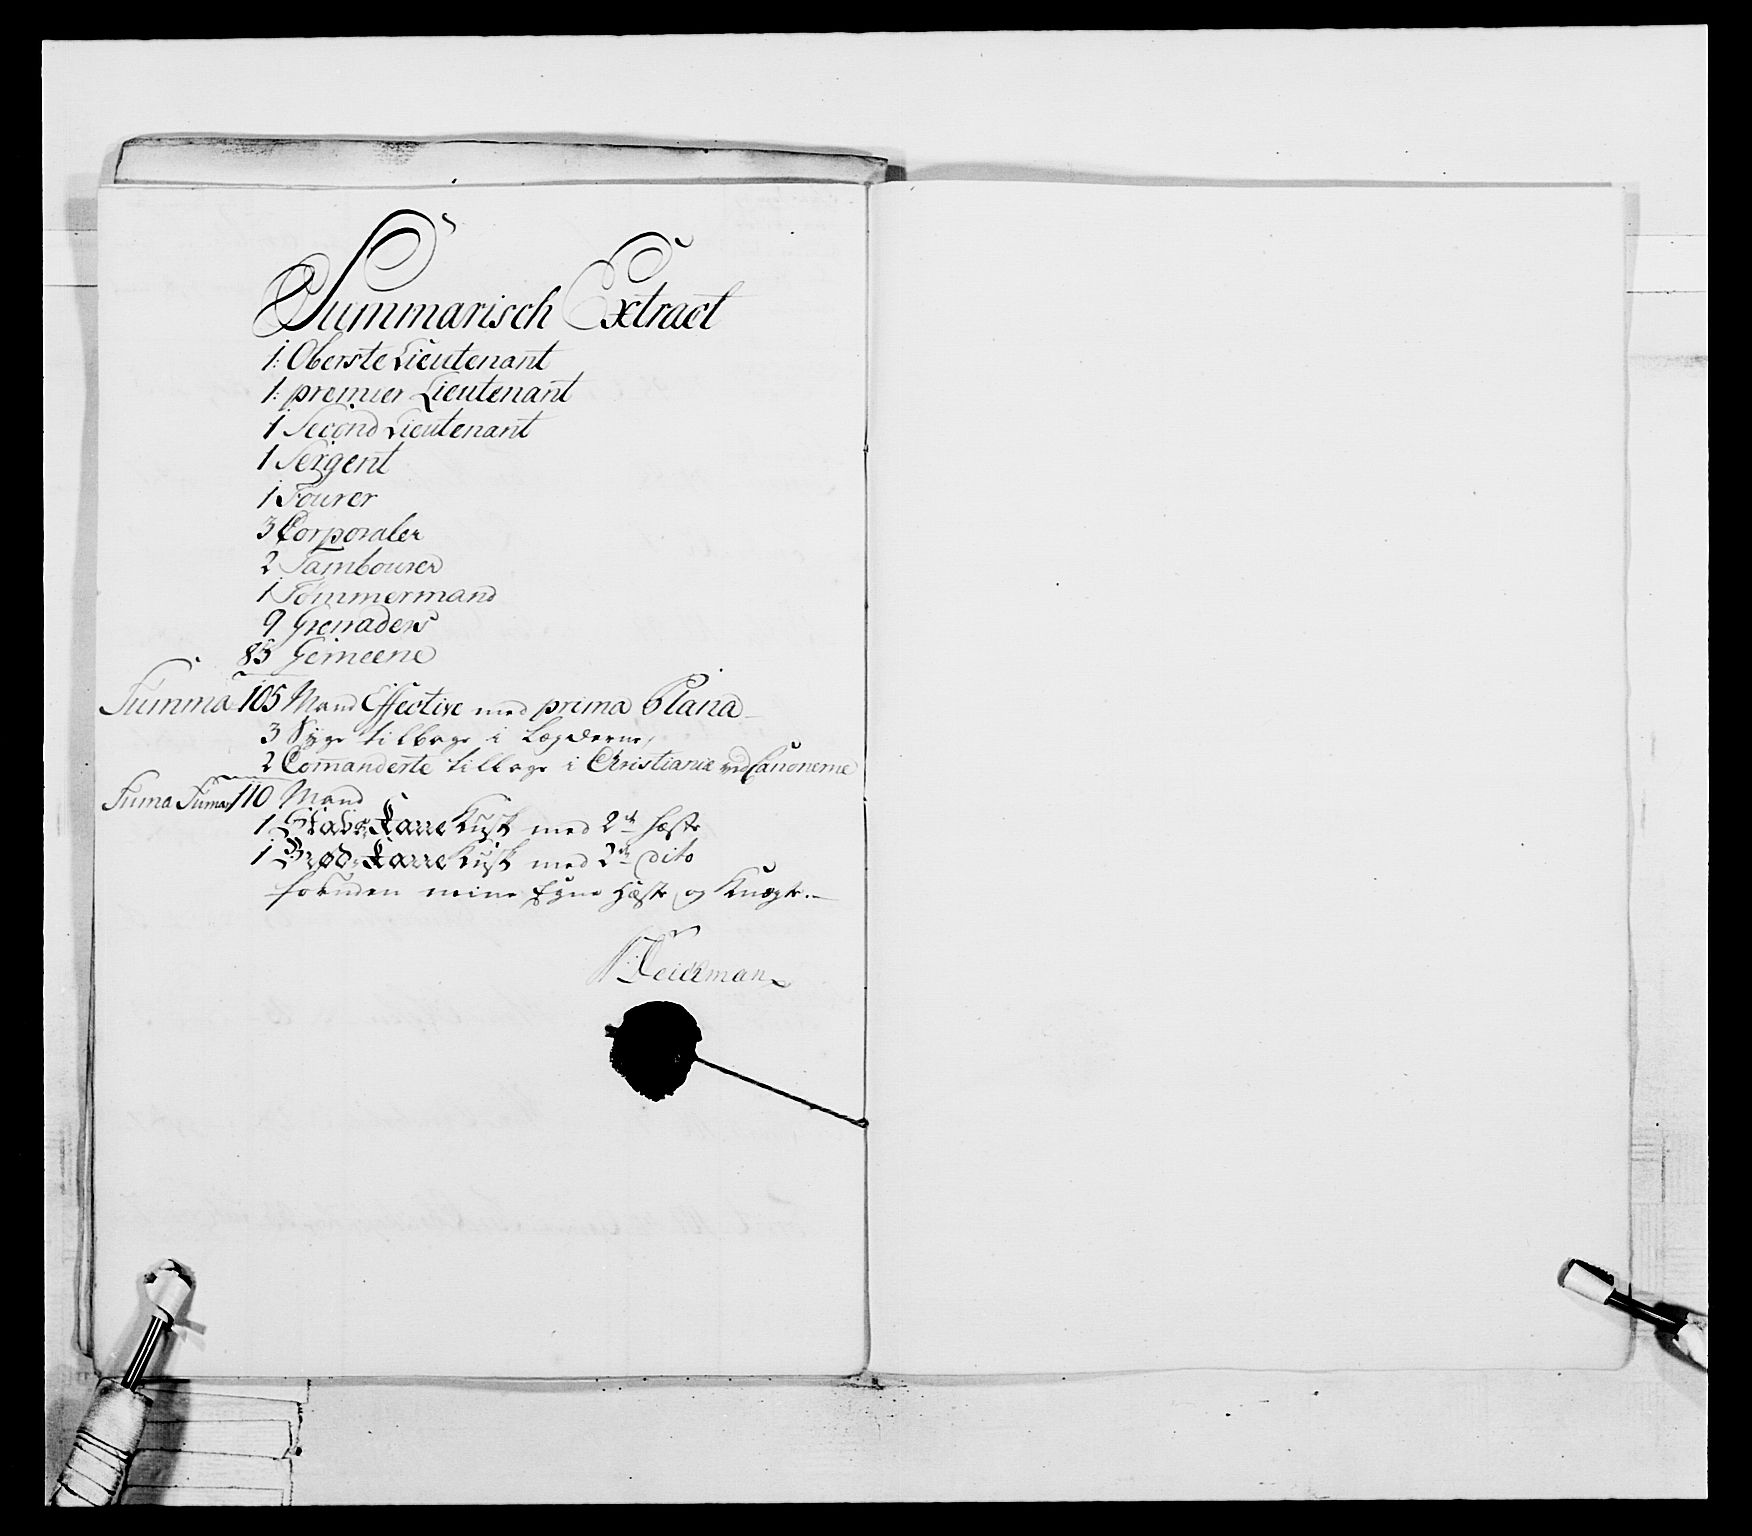 Summarisch Extract
1: Oberste Lieutenant
1: premier Lieutenant
1 Second Lieutenant
1 Sergent
1 Fourer
3 Corporaler
2 Tambourer
1 Tömmermand
9 Grenaders
85 Gemeene
Summa 105 Mand Effective med prima Plana
3 Syge tilbage i Lægderne,
2 Comanderte tilbage i Christiania ved Canonerne
Suma Sumar 110 Mand
1 Stabs Karre Kusk med 2de Hæste
1 Brød Karre Kusk med 2de dito
foruden mine Egne Hæste og Knægte.
Deickman